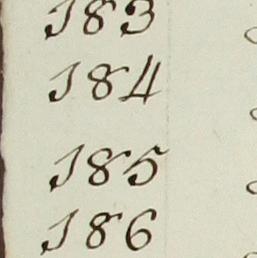 183
184
185
186